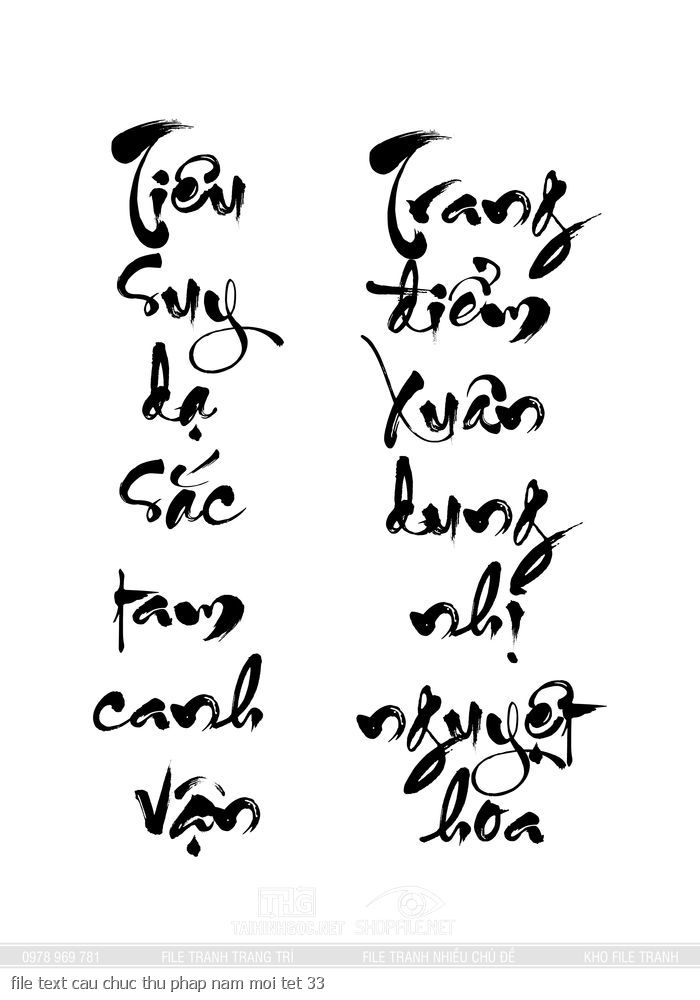 Tiêu
suy
dạ
sắc
tam
canh
vận
Trang
điểm
xuân
dung
nhị
nguyệt
hoa
THG
TAIHINHGOC.NET
SHOPFILE.NET
0978 969 781
FILE TRANH TRANG TRÍ
FILE TRANH NHIỀU CHỦ ĐỀ
KHO FILE TRANH
file text cau chuc thu phap nam moi tet 33